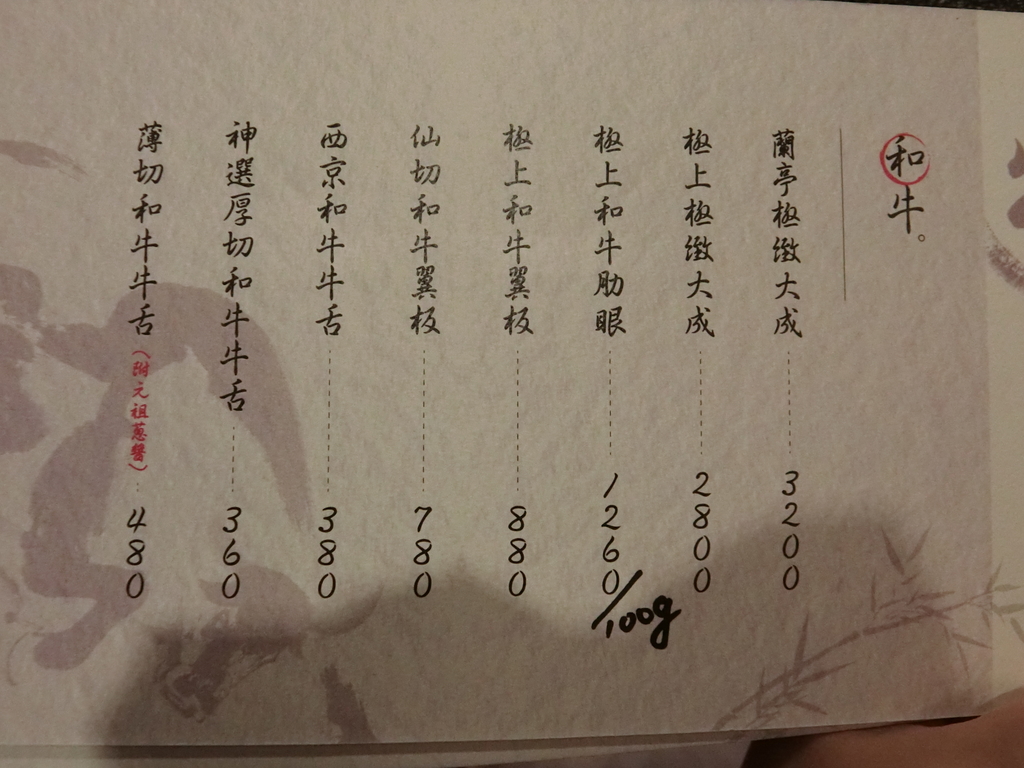 和牛。
蘭亭極緻大成 3200
極上極緻大成 2800
極上和牛肋眼 1260/100g
極上和牛翼板 880
仙切和牛翼板 780
西京和牛牛舌 380
神選厚切和牛牛舌 360
薄切和牛牛舌(附元祖蔥醬) 480